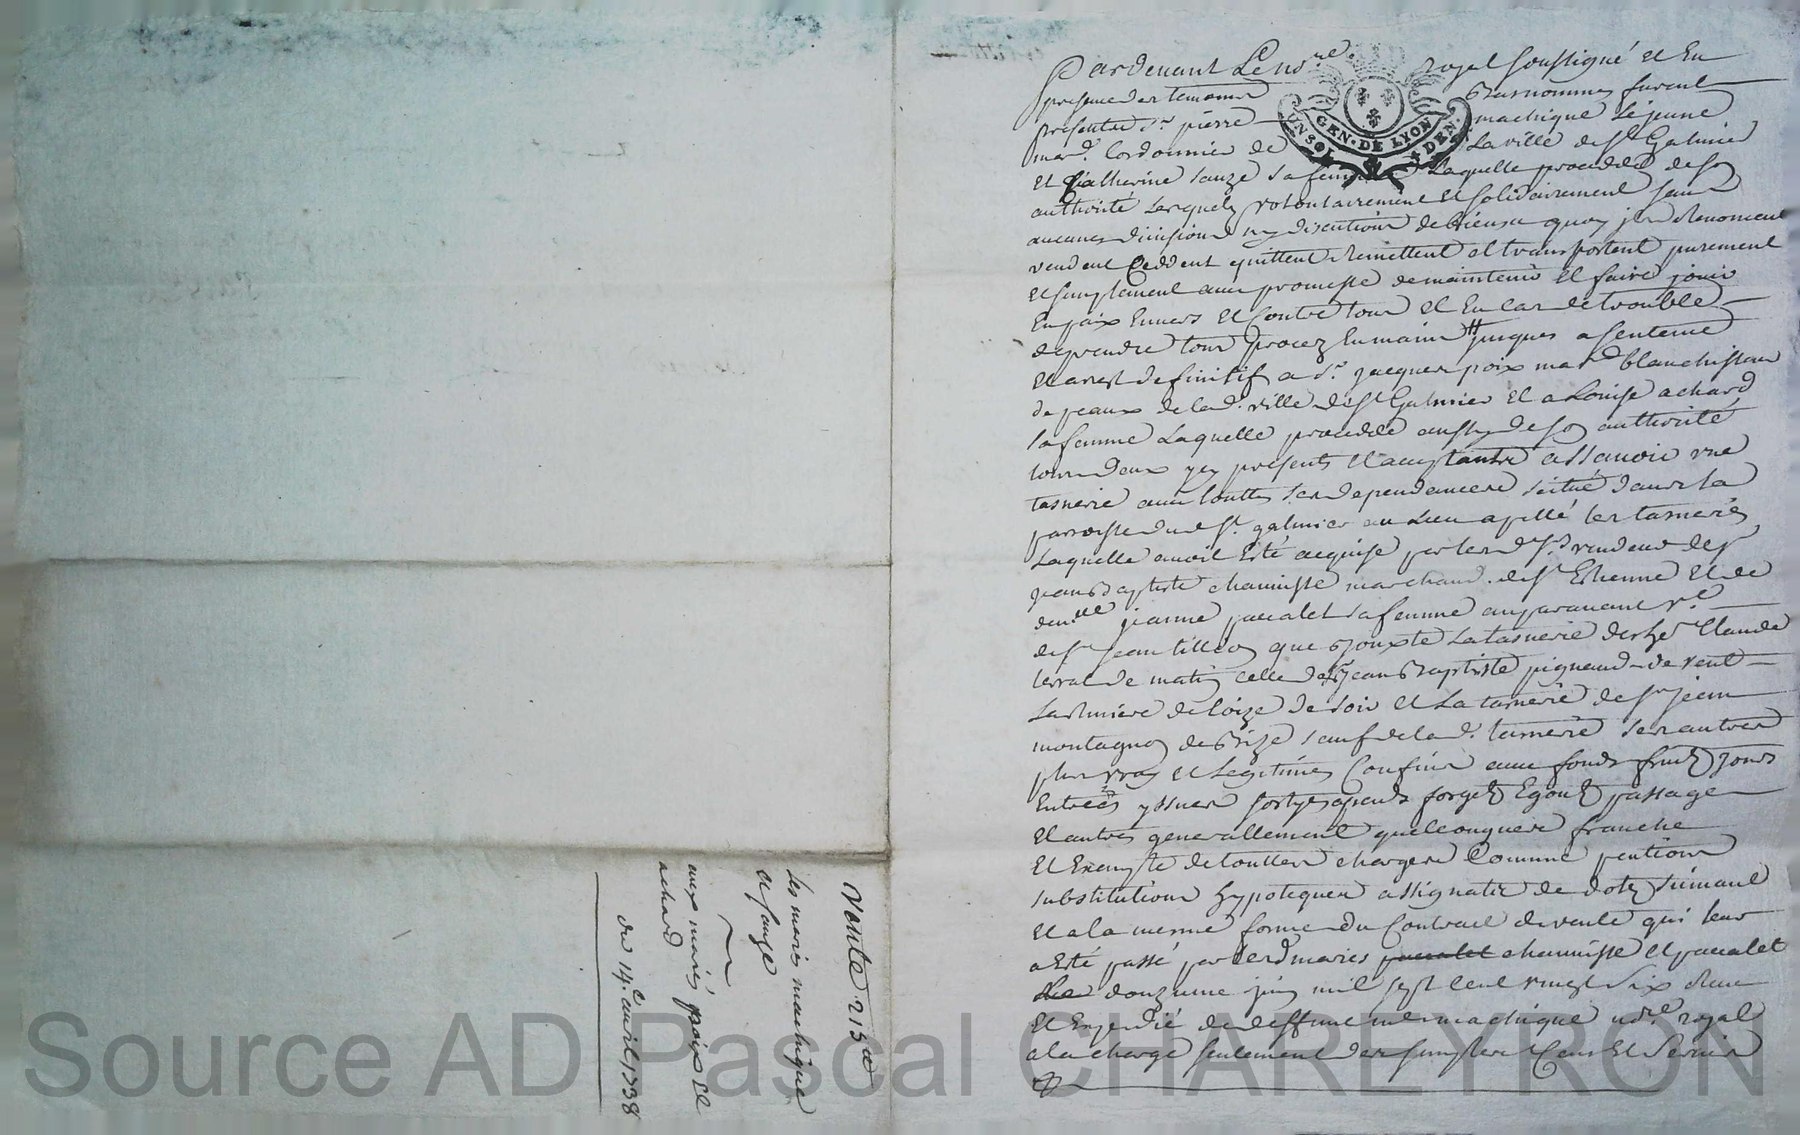 Pardevant Le no.re royal soussigné et En
presence des temoins Basnommes furent
presentes Sr. pierre machique Lejeune
mar.d Cordonnier de La ville de St Galmier
et Catherine sauze sa femme Laquelle procedde de so
authorité Lesquels volontairement et solidairement sans
aucunes division ny discution de biens a quoy ils renoncent
vendent Ceddent quittent remettent et transportent purement
et simplement avec promesse de maintenir et faire jouir
En paix Envers et Contre tous et En cas de trouble
de prendre tous procez En main jusques a sentence
et arrest definitif a Sr. jacques poix mar.d blanchisseur
de peaux de lad. ville de St Galmier et a Louise achard
sa femme Laquelle procedde aussy de so authorité
tous deux icy presents et acceptants assavoir une
tasnerie avec touttes ses dependances scitué dans la
parroisse dud St. galmier au Lieu apellé les tasneries
Laquelle avoit Esté acquise par lesd Srs. vendeurs de Sr
jean Baptiste chamisse marchand de St Ethienne et de
dem.lle jeanne paucalet sa femme auparavant v.e
de Sr jean tilleo que jouxte La tasnerie de Claude
terrat de matin celle de Sr jean Baptiste pignaud de vent
La riviere de Coize de soir et La tasnerie de Sr jean
montagno de Bize sauf de lad. tasnerie ses autres
plus vrays et Legitimes Confins avec fonds fruits jouis
Entrees yssues forges Egouts passage
et autres generallement quelconques franche
et Exempte de touttes charges Comme pentions
substitutions hypoteques assignatz de dots suivant
et a la meme forme du Contract de vente qui leur
a Esté passé par lesd maries paucalet chamisse et paucalet
Le douzieme juin mil sept cent vingt six receu
et Expedié de deffunt me machique no.re royal
a la charge seulement des simples Cens et Servis
UN SOL GEN. DE LYON 4 DEN.
Vente 215tt
les maries machique
et sauze
aux mariés poix et
achard
du 14.e avril 1738
Source AD Pascal CHAREYRON